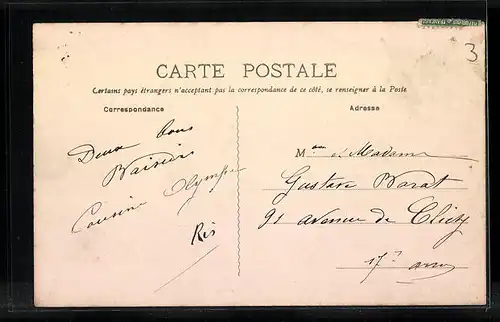 3
CARTE POSTALE
Certains pays étrangers n'acceptant pas la correspondance de ce côté, se renseigner à la Poste
Correspondance
Adresse
Deux bons
Baisers
Cousine Olympe
M et Madame
Gustave
91 avenue de Clichy
17e arr